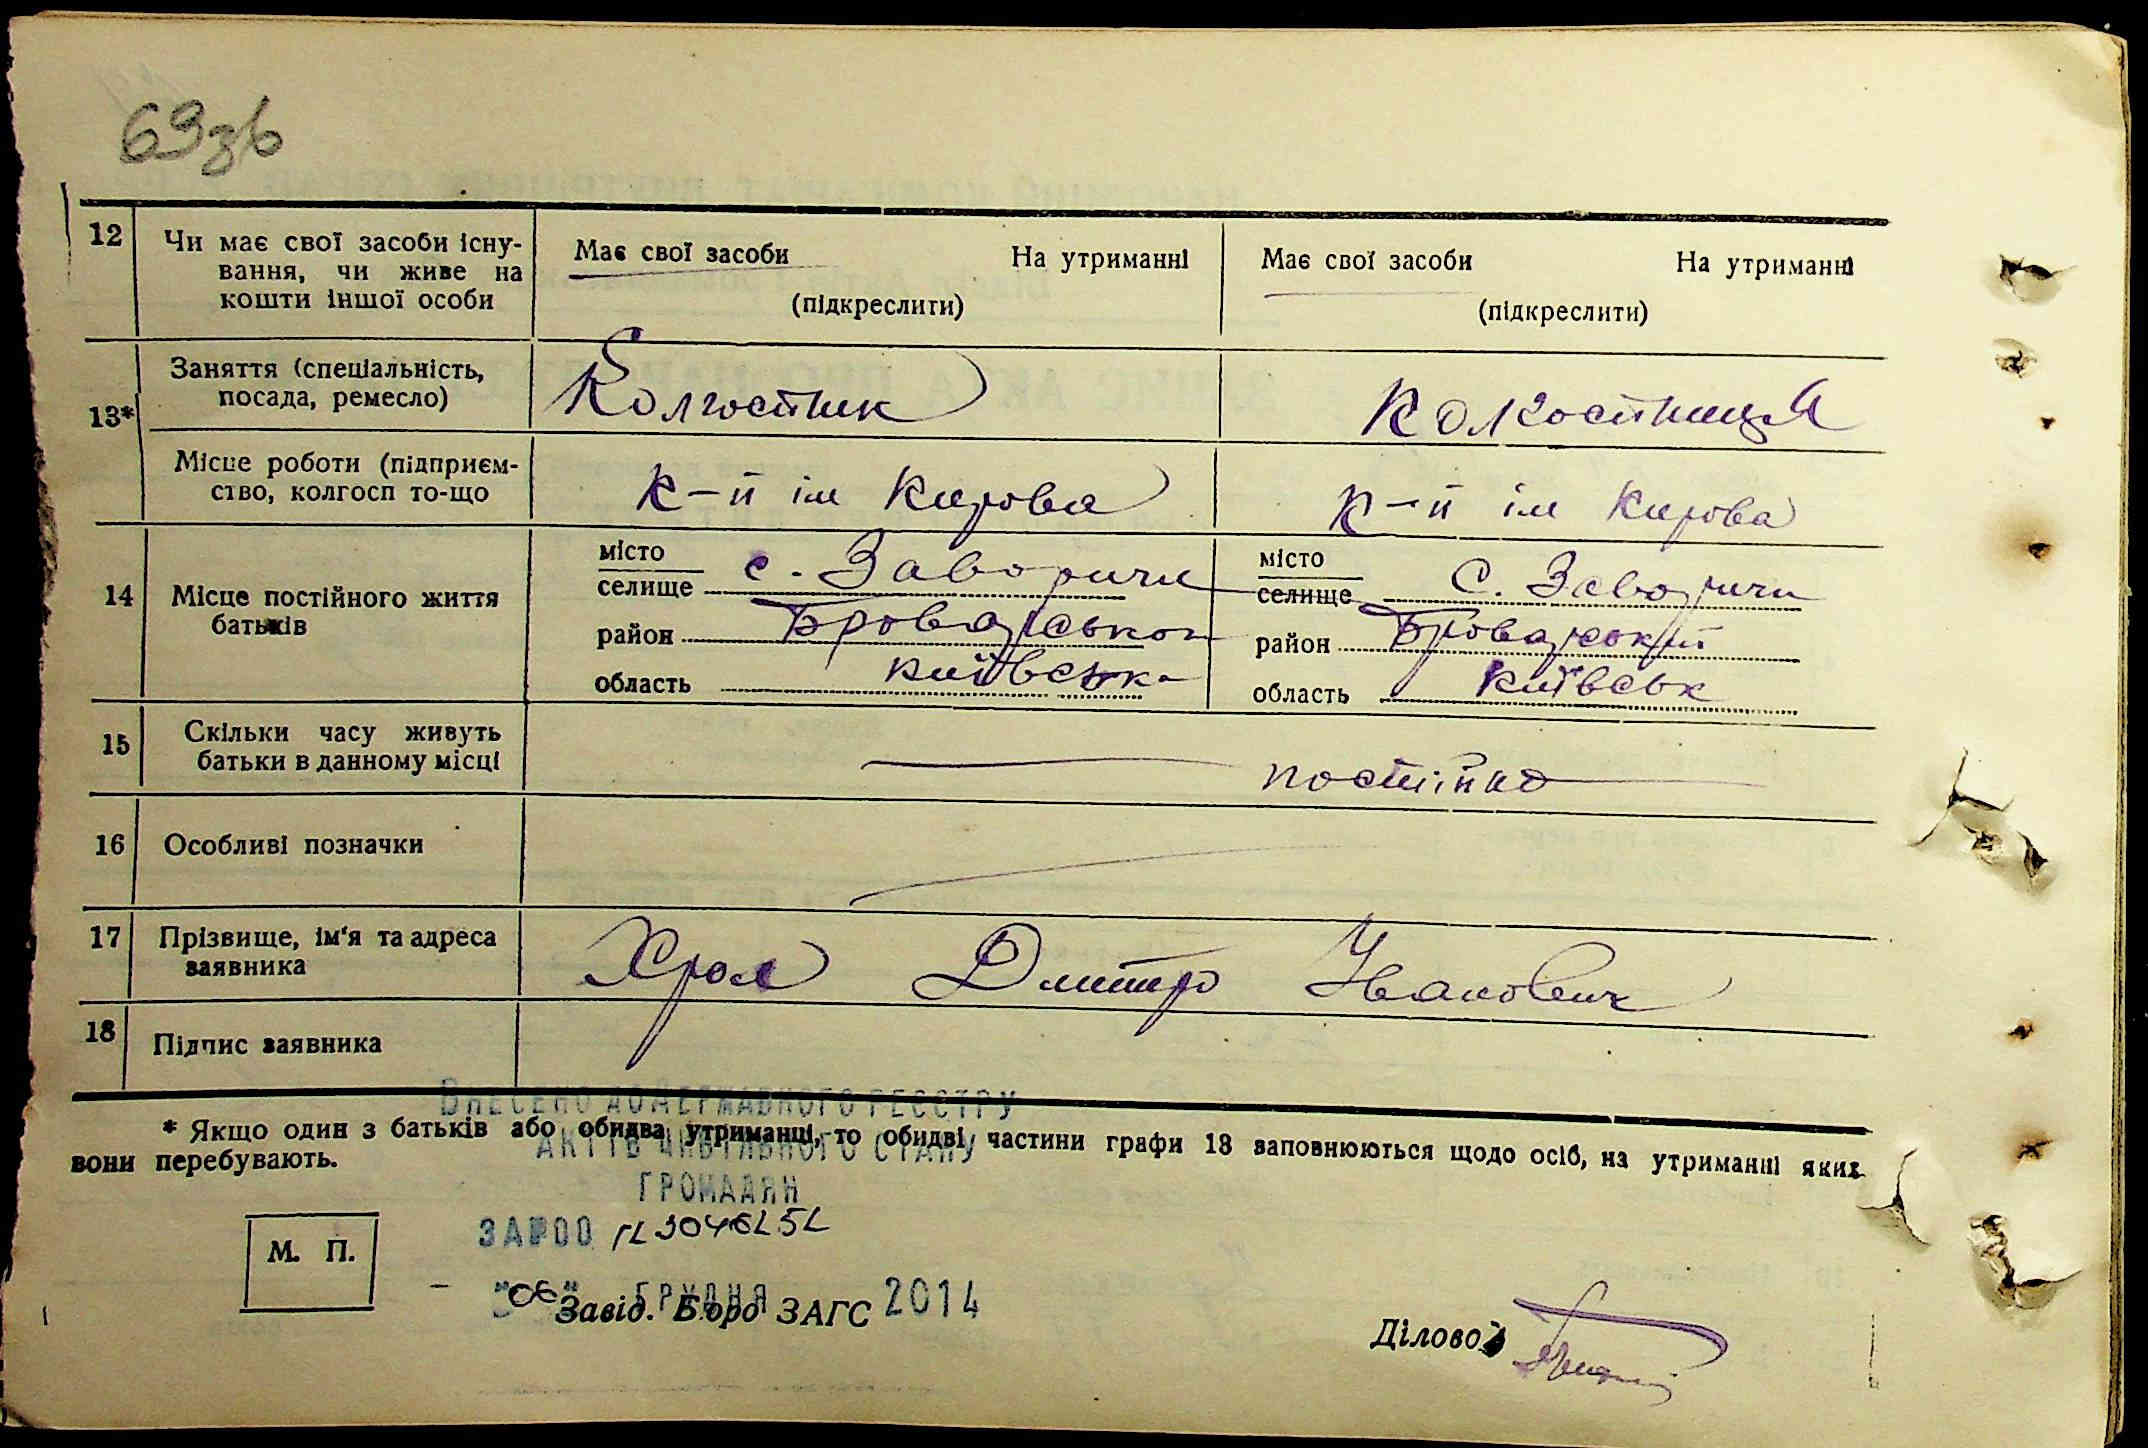 69зв
12 Чи має свої засоби існу- Має свої засоби На утриманні Має свої засоби На утриманні
вання, чи живе на
кошти іншої особи (підкреслити) (підкреслити)
Заняття (спеціальність,
посада, ремесло) Колгостник Колгостниця
13*
Місце роботи (підприєм-
ство, колгосп то-що К-п ім Кирова К-п ім Кирова
місто місто
селище с. Заворичи селище С. Заворичи
14 Місце постійного життя
батьків район Броварського район Броварський
область київська область київськ
15 Скільки часу живуть
батьки в данному місці постійно
16 Особливі позначки
17 Прізвище, ім'я та адреса
заявника Хрол Дмитро Іванович
18 Підпис заявника
Внесено до Державного реєстру
* Якщо один з батьків або обидва утриманці, то обидві частини графи 13 заповнюються щодо осіб, на утриманні яких
актів цивільного стану
вони перебувають.
громадян
за №00
М. П.
"06" грудня 2014
Завід. Бюро ЗАГС
Діловод